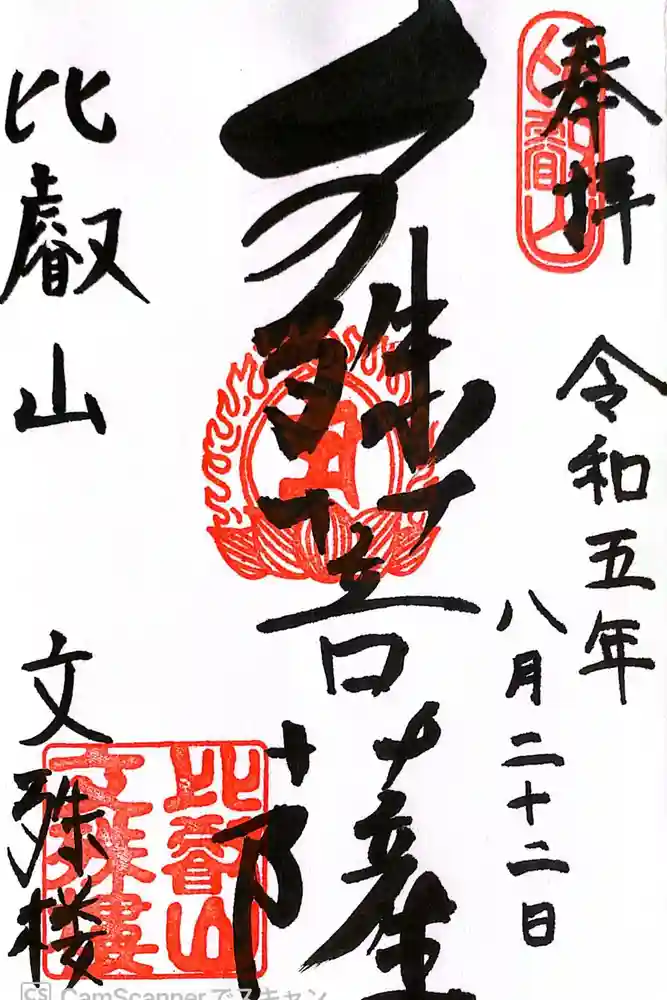 奉拝
比叡山
令和五年
八月二十二日
文殊菩薩
比叡山
文殊楼
比叡山
文殊樓
CS CamScanner でスキャン